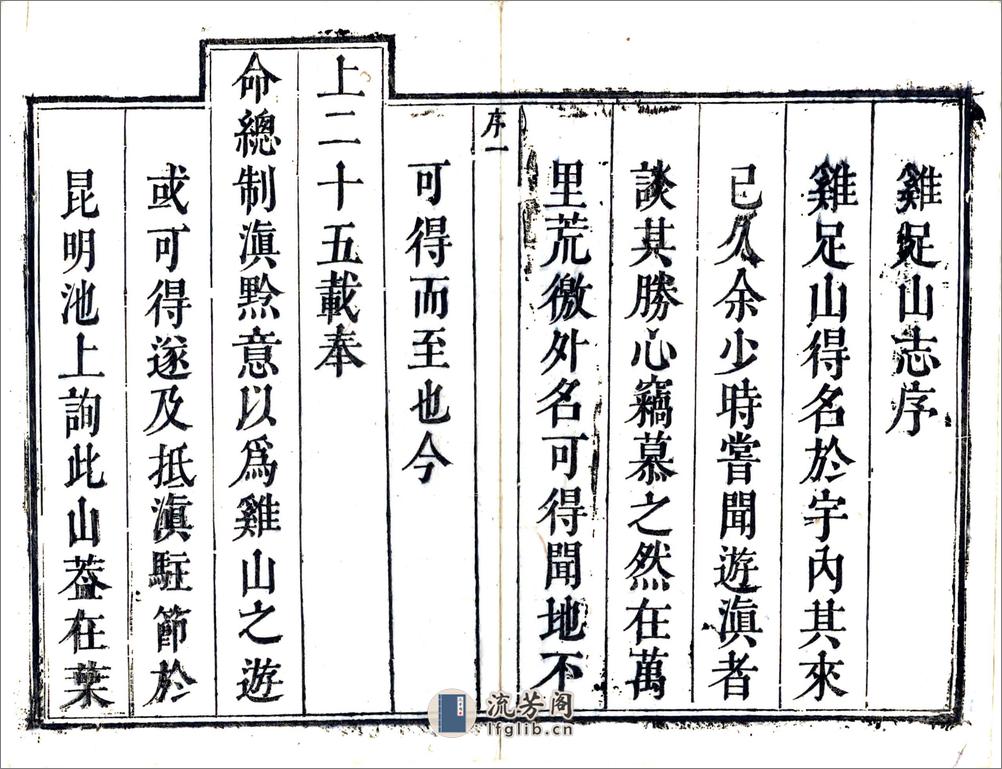 雞足山志序
雞足山得名於宇內其來
已久余少時嘗聞遊滇者
談其勝心竊慕之然在萬
里荒徼外名可得聞地不
序一
可得而至也今
上二十五載奉
命總制滇黔意以爲雞山之遊
或可得遂及抵滇駐節於
昆明池上詢此山葢在葉
流芳阁
lfglib.cn